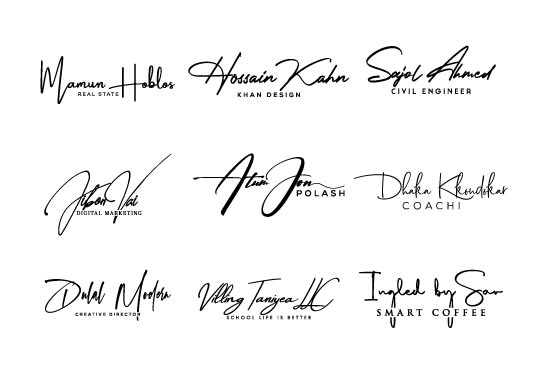 Mamun Hoblos
REAL STATE
Hossain Kahn
KHAN DESIGN
Sajol Ahmed
CIVIL ENGINEER
Jibon Vai
DIGITAL MARKETING
Atum Jon
POLASH
Dhaka Khondokar
COACHI
Dulal Modern
CREATIVE DIRECTOR
Villing Taniyea LLC
SCHOOL LIFE IS BETTER
Ingled by Sar
SMART COFFEE